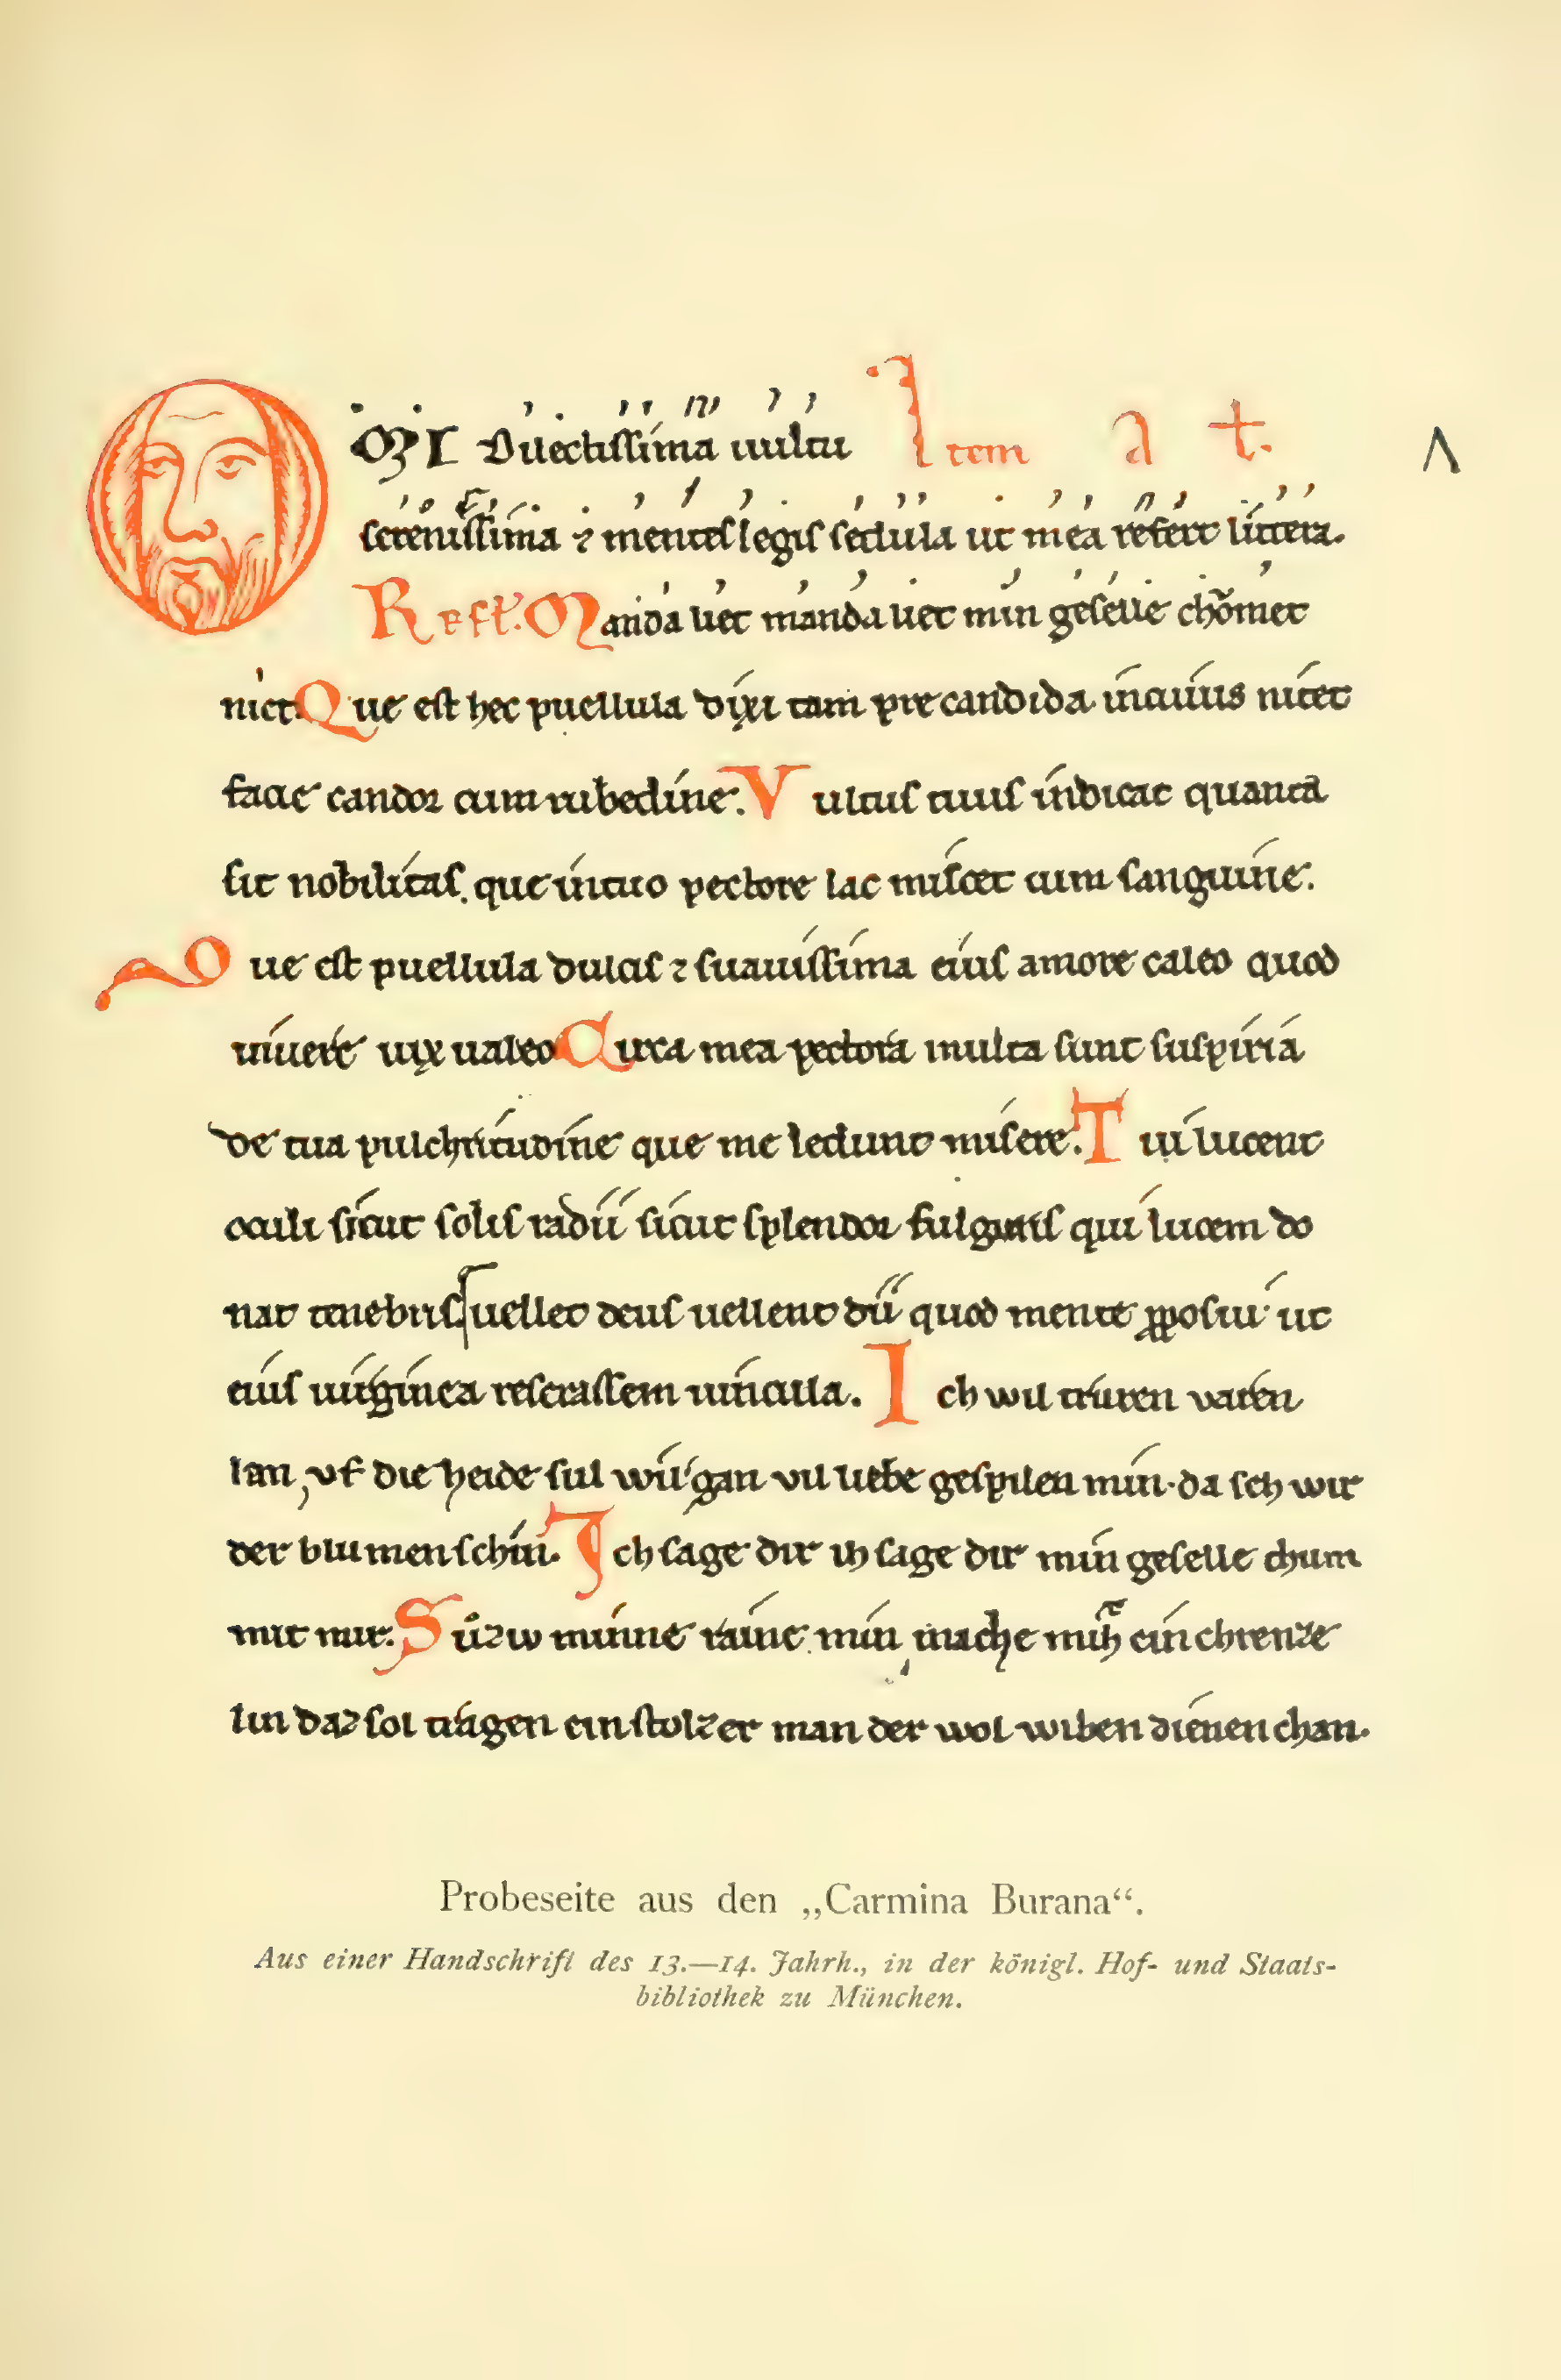 OMI Dilectissima uultu Item a t.
serenissima ⁊ mentes legis sedula ut mea refert littera.
Refl'. Manda liet manda liet min geselle chômet
niet. Que est hec puellula dixi tam precandida incuius nitet
facie candor cum rubedine. Vultus tuus indicat quanta
sit nobilitas. que intuo pectore lac miscet cum sanguine.
Que est puellula dulcis ⁊ suauissima eius amore caleo quod
uiuere uix ualeo Circa mea pectora multa sunt suspiria
de tua pulchritudine que me ledunt misere. Tui lucent
oculi sicut solis radii sicut splendor fulguris qui lucem do
nat tenebris uellet deus uellent dii quod mente pposui ut
eius uirginea reserassem uincula. Ich wil truren varen
lan, vf die heide sul wir gan vil liebe gespilen min. da seh wir
der blumen schin. Ich sage dir ih sage dir min geselle chum
mit mir. Sůziv minne raine min, mache mih ein chrenze
lin daz sol tragen ein stolzer man der wol wiben dienen chan.
Probeseite aus den „Carmina Burana“.
Aus einer Handschrift des 13.—14. Jahrh., in der königl. Hof- und Staats-
bibliothek zu München.